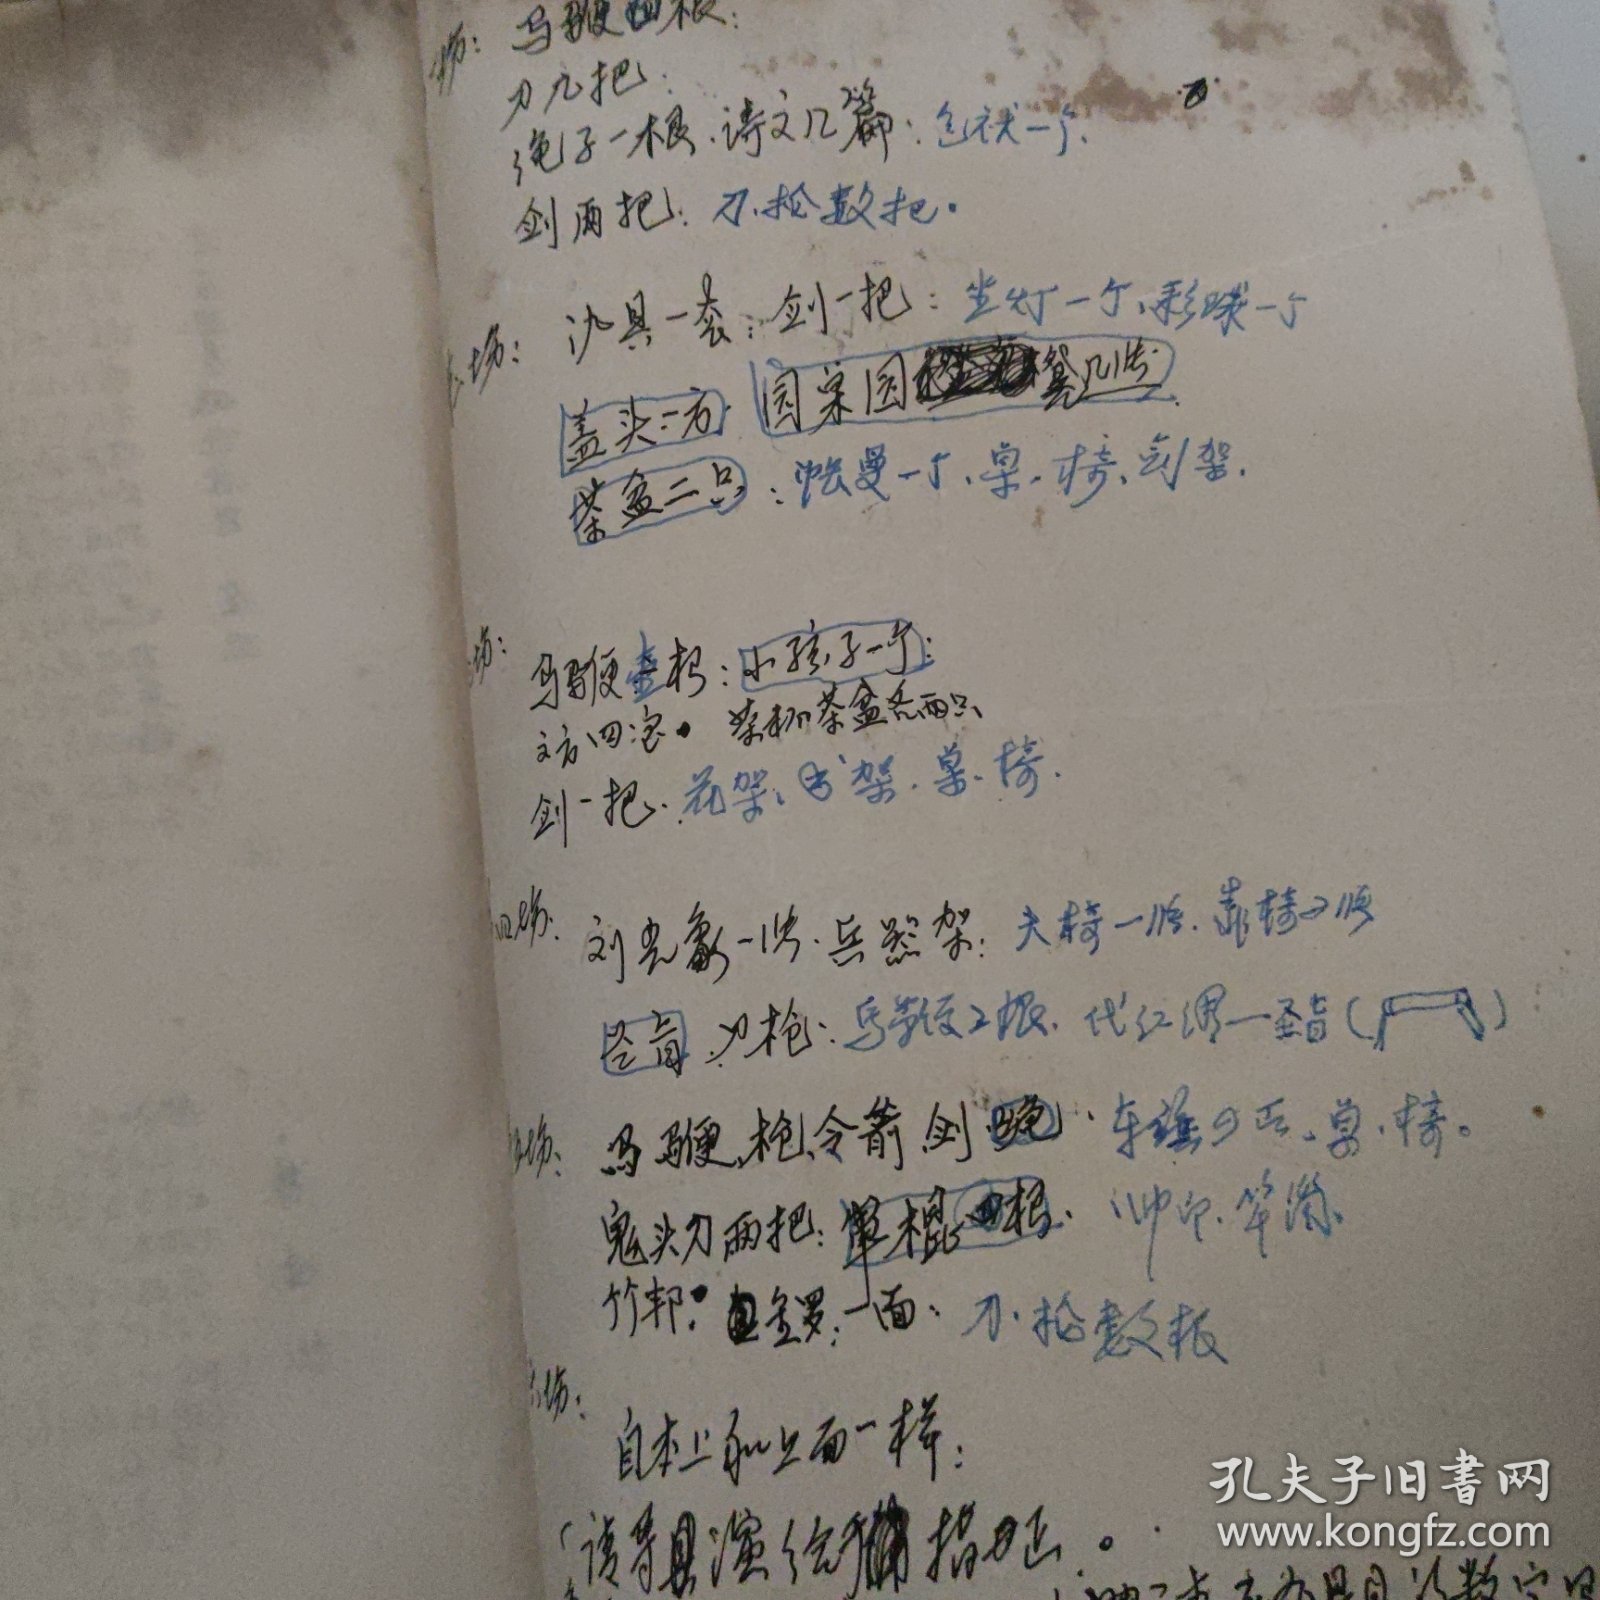 场：马鞭四根：
刀几把：
绳子一根、诗文几篇：包袱一个、
剑两把：刀、枪数把。
场：具一套：剑一把：坐灯一个、彩球一个
盖头一方 园桌园凳几张
茶盆二只：帐曼一个、桌、椅、剑架、
场：马鞭壹根：小孩子一个：
文方四宝。茶杯茶盆各两只
剑一把、花架、书架、桌、椅、
四场：刘光象一张、兵器架：大椅一张、靠椅2张
刀枪：马鞭2根、代红绸一
场：马鞭、枪、令箭 剑 绳、车、桌、椅。
鬼头刀两把：单棍四根、帅印、笔
竹邦：锣：一面：刀、枪数根
场：
自本上和上面一样：
请导演给指正。
孔夫子旧書网
www.kongfz.com